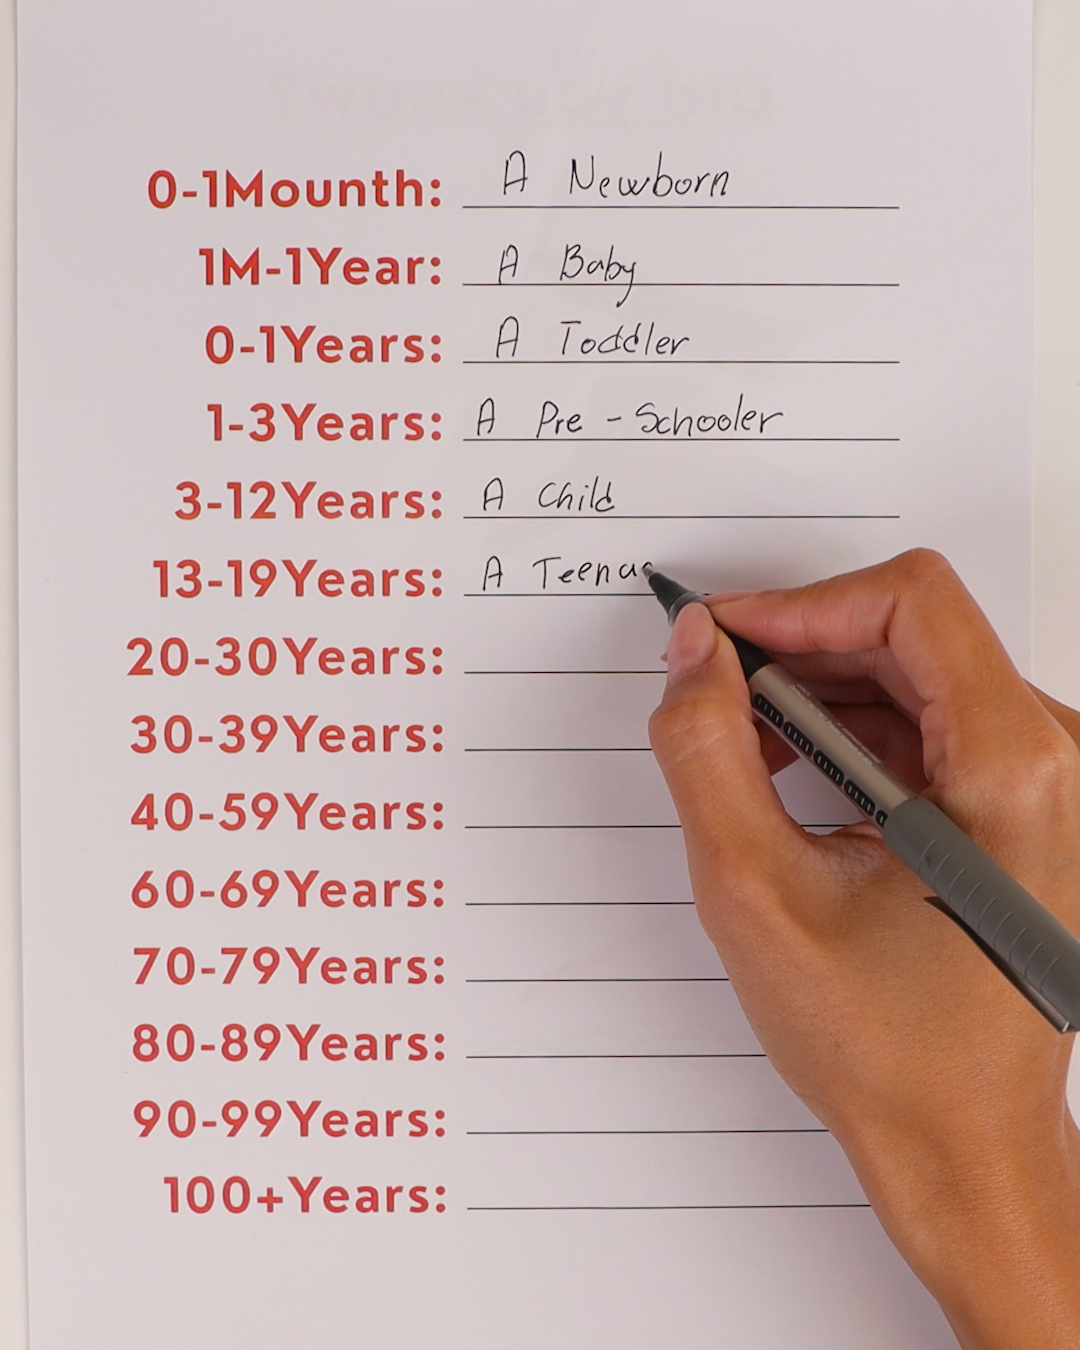 Did you know?
0-1Mounth: A Newborn
1M-1Year: A Baby
0-1Years: A Toddler
1-3Years: A Pre-Schooler
3-12Years: A Child
13-19Years: A Teenag
20-30Years:
30-39Years:
40-59Years:
60-69Years:
70-79Years:
80-89Years:
90-99Years:
100+Years: